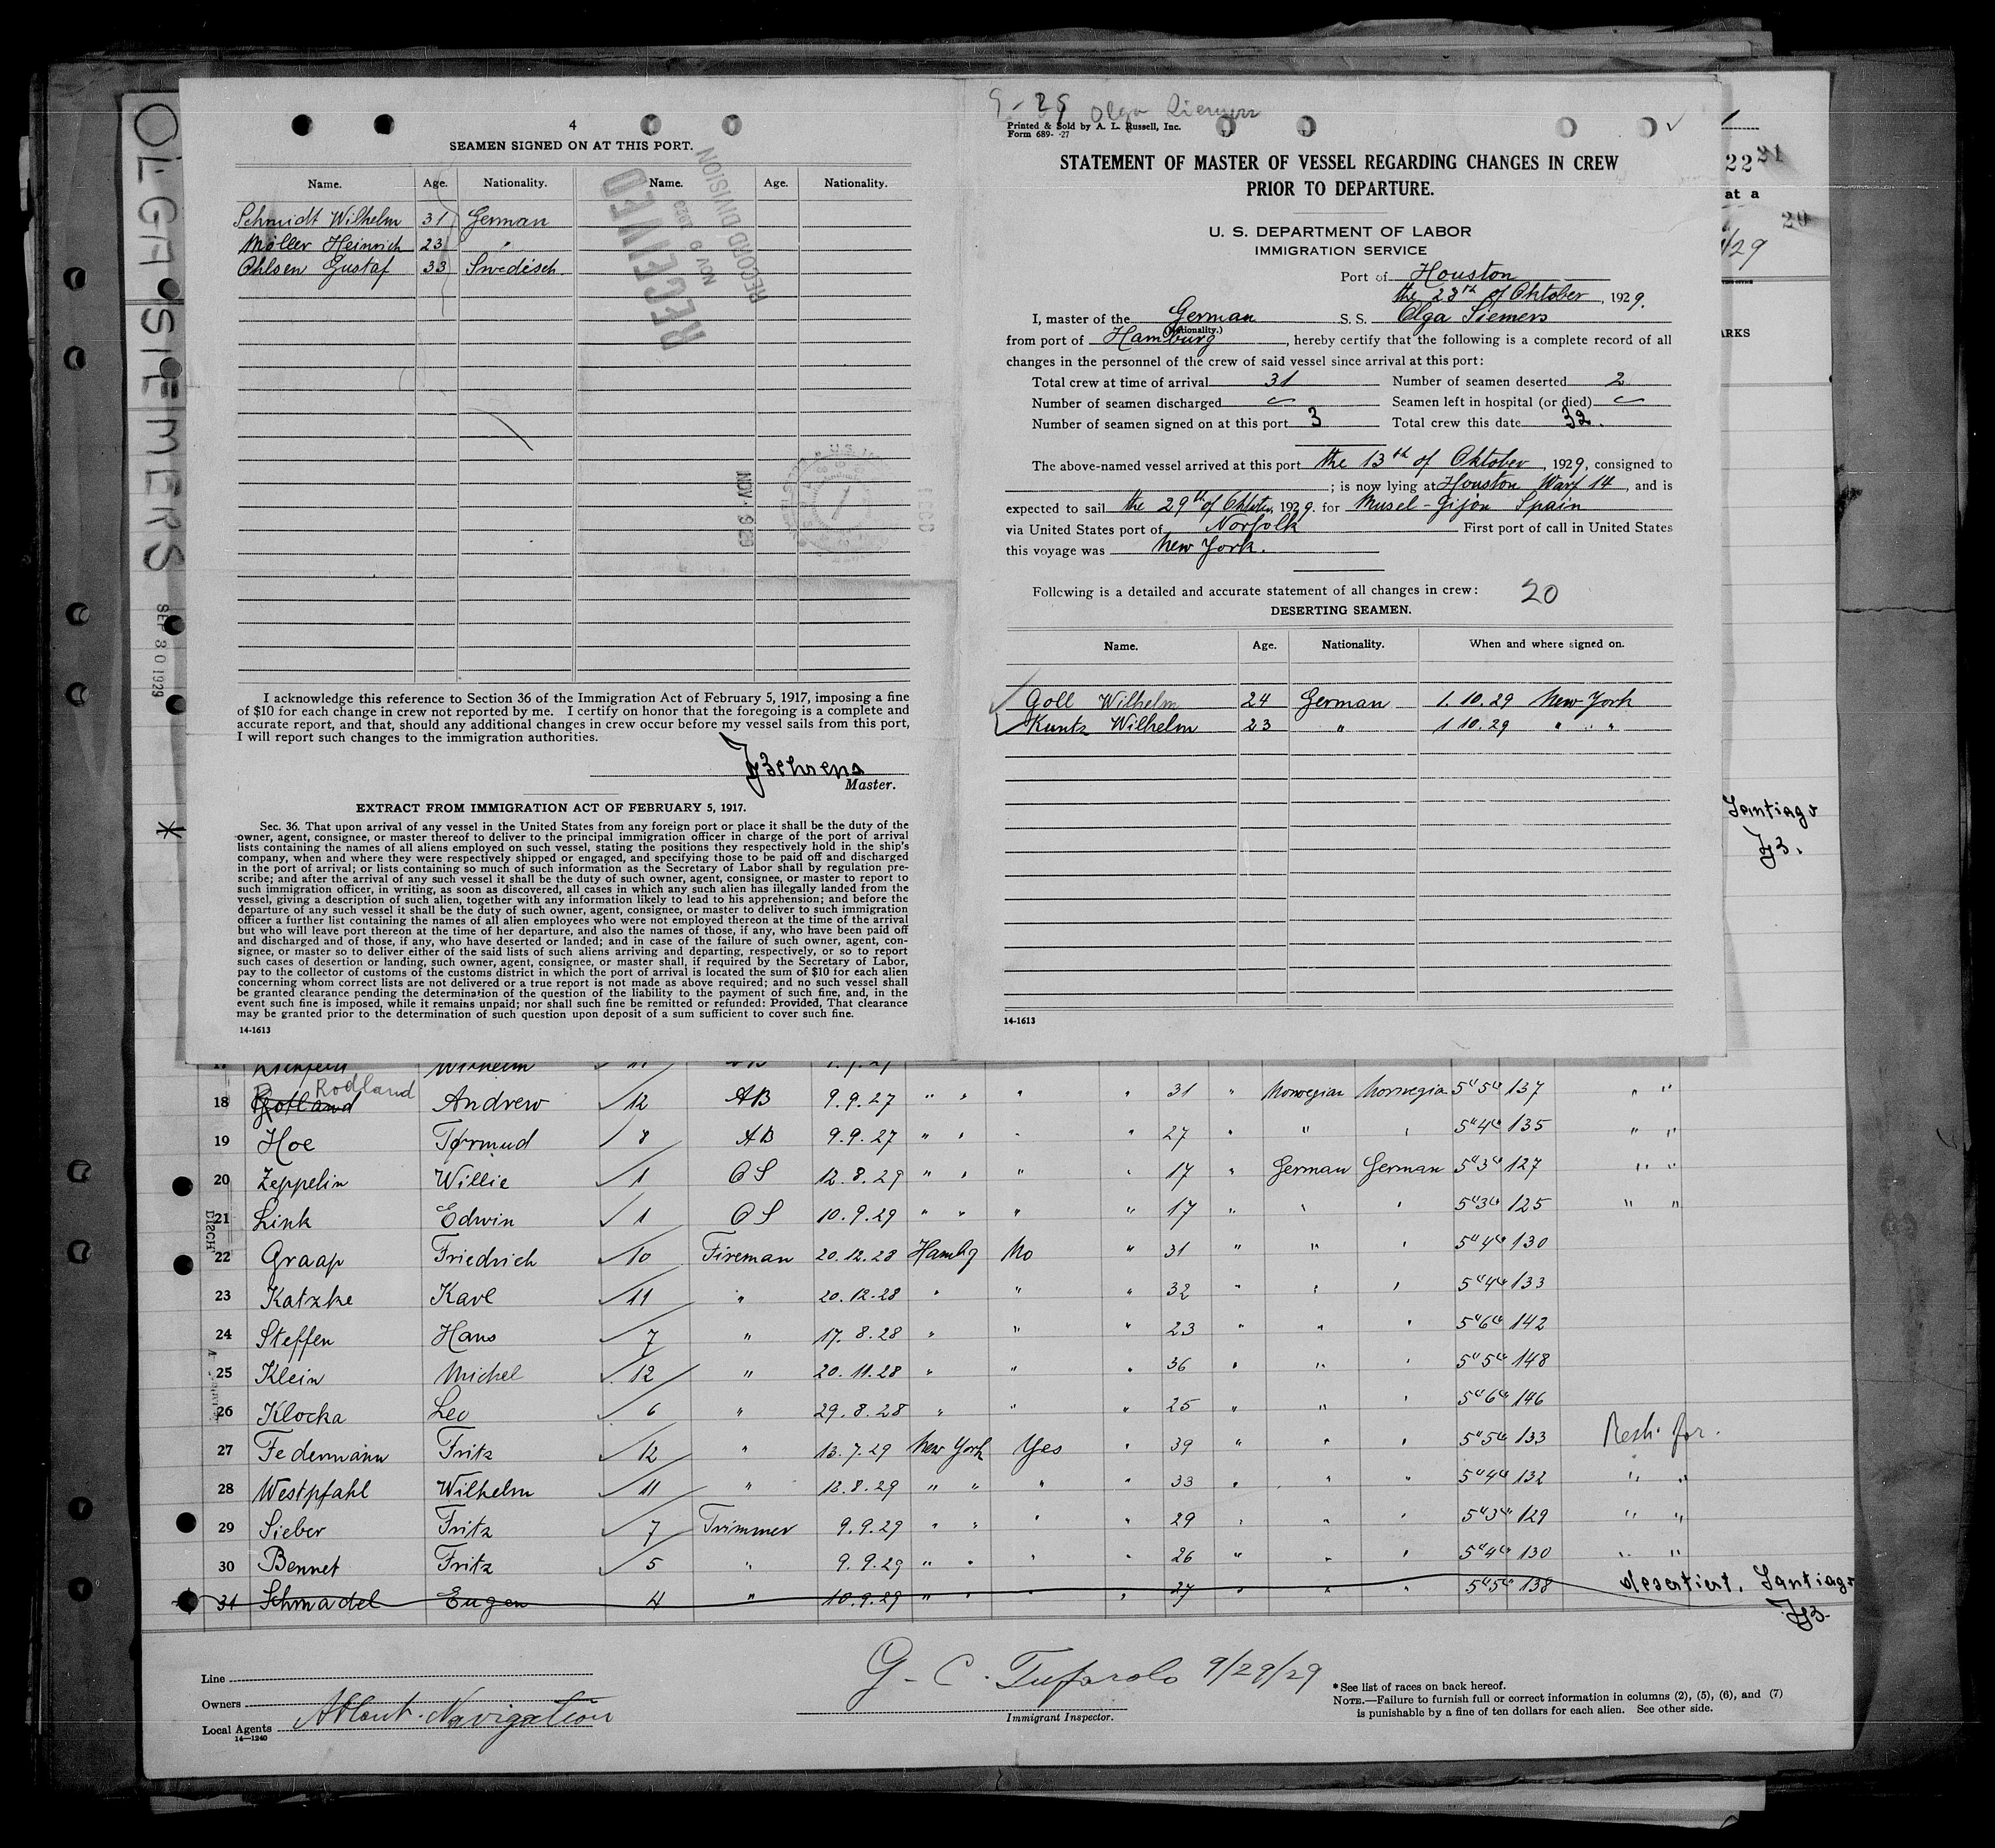 OLGA SIEMERS
SEP 30 1929
4
SEAMEN SIGNED ON AT THIS PORT.
Name. Age. Nationality. Name. Age. Nationality.
Schmidt Wilhelm 31 German
Möller Heinrich 23 "
Ohlsen Gustaf 33 Swedisch.
RECEIVED
NOV 9 1929
RECORD DIVISION
NOV 9 1929
I acknowledge this reference to Section 36 of the Immigration Act of February 5, 1917, imposing a fine
of $10 for each change in crew not reported by me. I certify on honor that the foregoing is a complete and
accurate report, and that, should any additional changes in crew occur before my vessel sails from this port,
I will report such changes to the immigration authorities.
Behrens
Master.
EXTRACT FROM IMMIGRATION ACT OF FEBRUARY 5, 1917.
Sec. 36. That upon arrival of any vessel in the United States from any foreign port or place it shall be the duty of the
owner, agent, consignee, or master thereof to deliver to the principal immigration officer in charge of the port of arrival
lists containing the names of all aliens employed on such vessel, stating the positions they respectively hold in the ship's
company, when and where they were respectively shipped or engaged, and specifying those to be paid off and discharged
in the port of arrival; or lists containing so much of such information as the Secretary of Labor shall by regulation pre-
scribe; and after the arrival of any such vessel it shall be the duty of such owner, agent, consignee, or master to report to
such immigration officer, in writing, as soon as discovered, all cases in which any such alien has illegally landed from the
vessel, giving a description of such alien, together with any information likely to lead to his apprehension; and before the
departure of any such vessel it shall be the duty of such owner, agent, consignee, or master to deliver to such immigration
officer a further list containing the names of all alien employees who were not employed thereon at the time of the arrival
but who will leave port thereon at the time of her departure, and also the names of those, if any, who have been paid off
and discharged and of those, if any, who have deserted or landed; and in case of the failure of such owner, agent, con-
signee, or master so to deliver either of the said lists of such aliens arriving and departing, respectively, or so to report
such cases of desertion or landing, such owner, agent, consignee, or master shall, if required by the Secretary of Labor,
pay to the collector of customs of the customs district in which the port of arrival is located the sum of $10 for each alien
concerning whom correct lists are not delivered or a true report is not made as above required; and no such vessel shall
be granted clearance pending the determination of the question of the liability to the payment of such fine, and, in the
event such fine is imposed, while it remains unpaid; nor shall such fine be remitted or refunded: Provided, That clearance
may be granted prior to the determination of such question upon deposit of a sum sufficient to cover such fine.
14-1613
Olga Siemers
Printed & Sold by A. L. Russell, Inc.
Form 689- -27
STATEMENT OF MASTER OF VESSEL REGARDING CHANGES IN CREW
PRIOR TO DEPARTURE.
U. S. DEPARTMENT OF LABOR
IMMIGRATION SERVICE
Port of Houston
the 28th of Oktober, 1929.
I, master of the German S. S. Olga Siemers
(Nationality.)
from port of Hamburg, hereby certify that the following is a complete record of all
changes in the personnel of the crew of said vessel since arrival at this port:
Total crew at time of arrival 31 Number of seamen deserted 2
Number of seamen discharged Seamen left in hospital (or died)
Number of seamen signed on at this port 3 Total crew this date 32.
The above-named vessel arrived at this port the 13th of Oktober, 1929, consigned to
; is now lying at Houston Warf 14, and is
expected to sail the 29th of Oktober, 1929. for Musel-Gijon Spain
via United States port of Norfolk First port of call in United States
this voyage was New York.
Following is a detailed and accurate statement of all changes in crew: 20
DESERTING SEAMEN.
Name. Age. Nationality. When and where signed on.
Goll Wilhelm 24 German 1. 10. 29 New York
Kuntz Wilhelm 23 " 1 10. 29 " "
14-1613
22 21
at a
20
/29
ARKS
Santiago
JB.
Wilhelm
18 Rotland Rodland Andrew 12 AB 9.9.27 " " " " 31 " Norwegian Norwegia 5"5" 137 " "
19 Hoe Tørmud 8 AB 9.9.27 " " " " 27 " " " 5"4" 135 " "
20 Zeppelin Willie 1 OS 12.8.29 " " " " 17 " German German 5"3" 127 " "
21 Link Edwin 1 OS 10.9.29 " " " " 17 " " " 5"3" 125 " "
22 Graap Friedrich 10 Fireman 20.12.28 Hambg No " 31 " " " 5"4" 130
23 Katzke Karl 11 " 20.12.28 " " " 32 " " " 5"4" 133
24 Steffen Hans 7 " 17.8.28 " " " 23 " " " 5"6" 142
25 Klein Michel 12 " 20.11.28 " " " 36 " " " 5"5" 148
26 Klocka Leo 6 " 29.8.28 " " " 25 " " " 5"6" 146
27 Federmann Fritz 12 " 13.7.29 New York Yes " 39 " " " 5"5" 133 Resh. for.
28 Westpfahl Wilhelm 11 " 12.8.29 " " " " 33 " " " 5"4" 132 " "
29 Sieber Fritz 7 Trimmer 9.9.29 " " " " 29 " " " 5"3" 129 " "
30 Bennet Fritz 5 " 9.9.29 " " " " 26 " " " 5"4" 130 " "
31 Schmadel Eugen 4 " 10.9.29 " " " " 27 " " " 5"5" 138 desertiert, Santiago
JB.
Line
Owners
Local Agents Atlant. Navigation
14—1240
G. C. Tufarolo 9/29/29
Immigrant Inspector.
*See list of races on back hereof.
NOTE.—Failure to furnish full or correct information in columns (2), (5), (6), and (7)
is punishable by a fine of ten dollars for each alien. See other side.